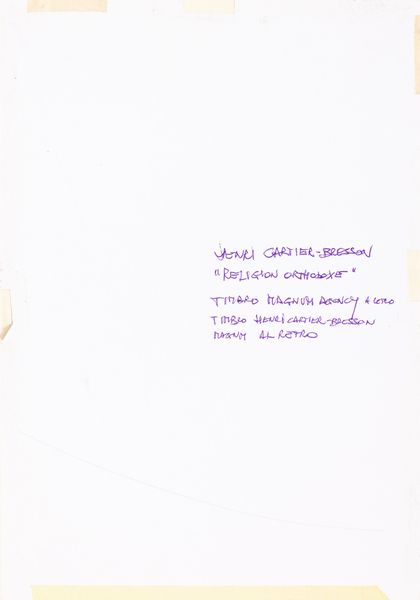 HENRI CARTIER-BRESSON
"RELIGION ORTHODOXE"
TIMBRO MAGNUM AGENCY AL RETRO
TIMBRO HENRI CARTIER-BRESSON
MAGNUM AL RETRO